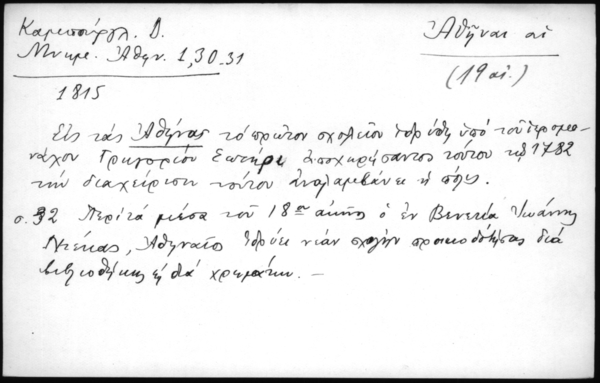 Καμπούρογλ. Δ.
Μνημ. Ἀθην. 1,30-31
1815
Ἀθῆναι αἱ
(19 αἰ.)
Εἰς τάς Ἀθήνας τό πρῶτον σχολεῖον ἱδρύθη ὑπό τοῦ ἱερομο-
νάχου Γρηγορίου Σωτήρη ἀποχωρήσαντος τούτου τῷ 1782
τήν διαχείρισιν τούτου ἀναλαμβάνει ἡ πόλις.
σ. 32 Περί τά μέσα τοῦ 18ου αἰῶνος ὁ ἐν Βενετίᾳ Ἰωάννης
Ντέκας, Ἀθηναῖος ἵδρυσε νέαν σχολήν προικοδοτήσας διά
βιβλιοθήκης καί διά χρημάτων. —